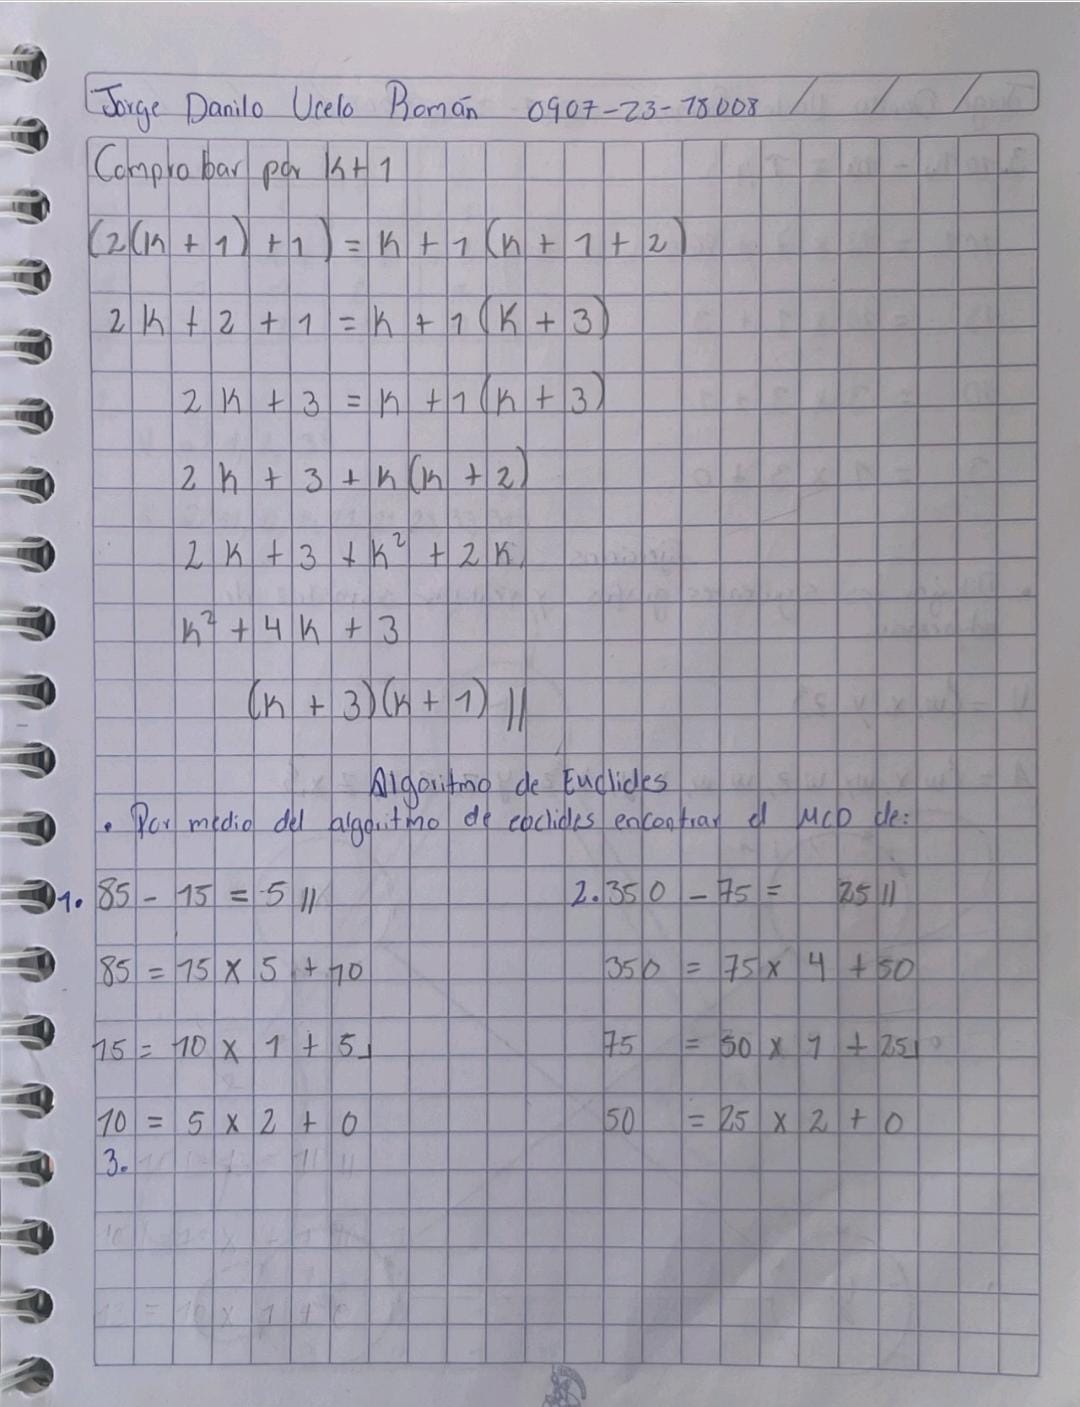 Jorge Danilo Ucelo Román 0907-23-18008 / / /
Comprobar por K+1
(2(K + 1) + 1) = K + 1 (K + 1 + 2)
2K + 2 + 1 = K + 1 (K + 3)
2K + 3 = K + 1 (K + 3)
2K + 3 + K(K + 2)
2K + 3 + K² + 2K
K² + 4K + 3
(K + 3)(K + 1) //
Algoritmo de Euclides
• Por medio del algoritmo de eoclides encontrar el MCD de:
1. 85 - 15 = 5 //
85 = 15 x 5 + 10
15 = 10 x 1 + 5
10 = 5 x 2 + 0
2. 350 - 75 = 25 //
350 = 75 x 4 + 50
75 = 50 x 1 + 25
50 = 25 x 2 + 0
3.